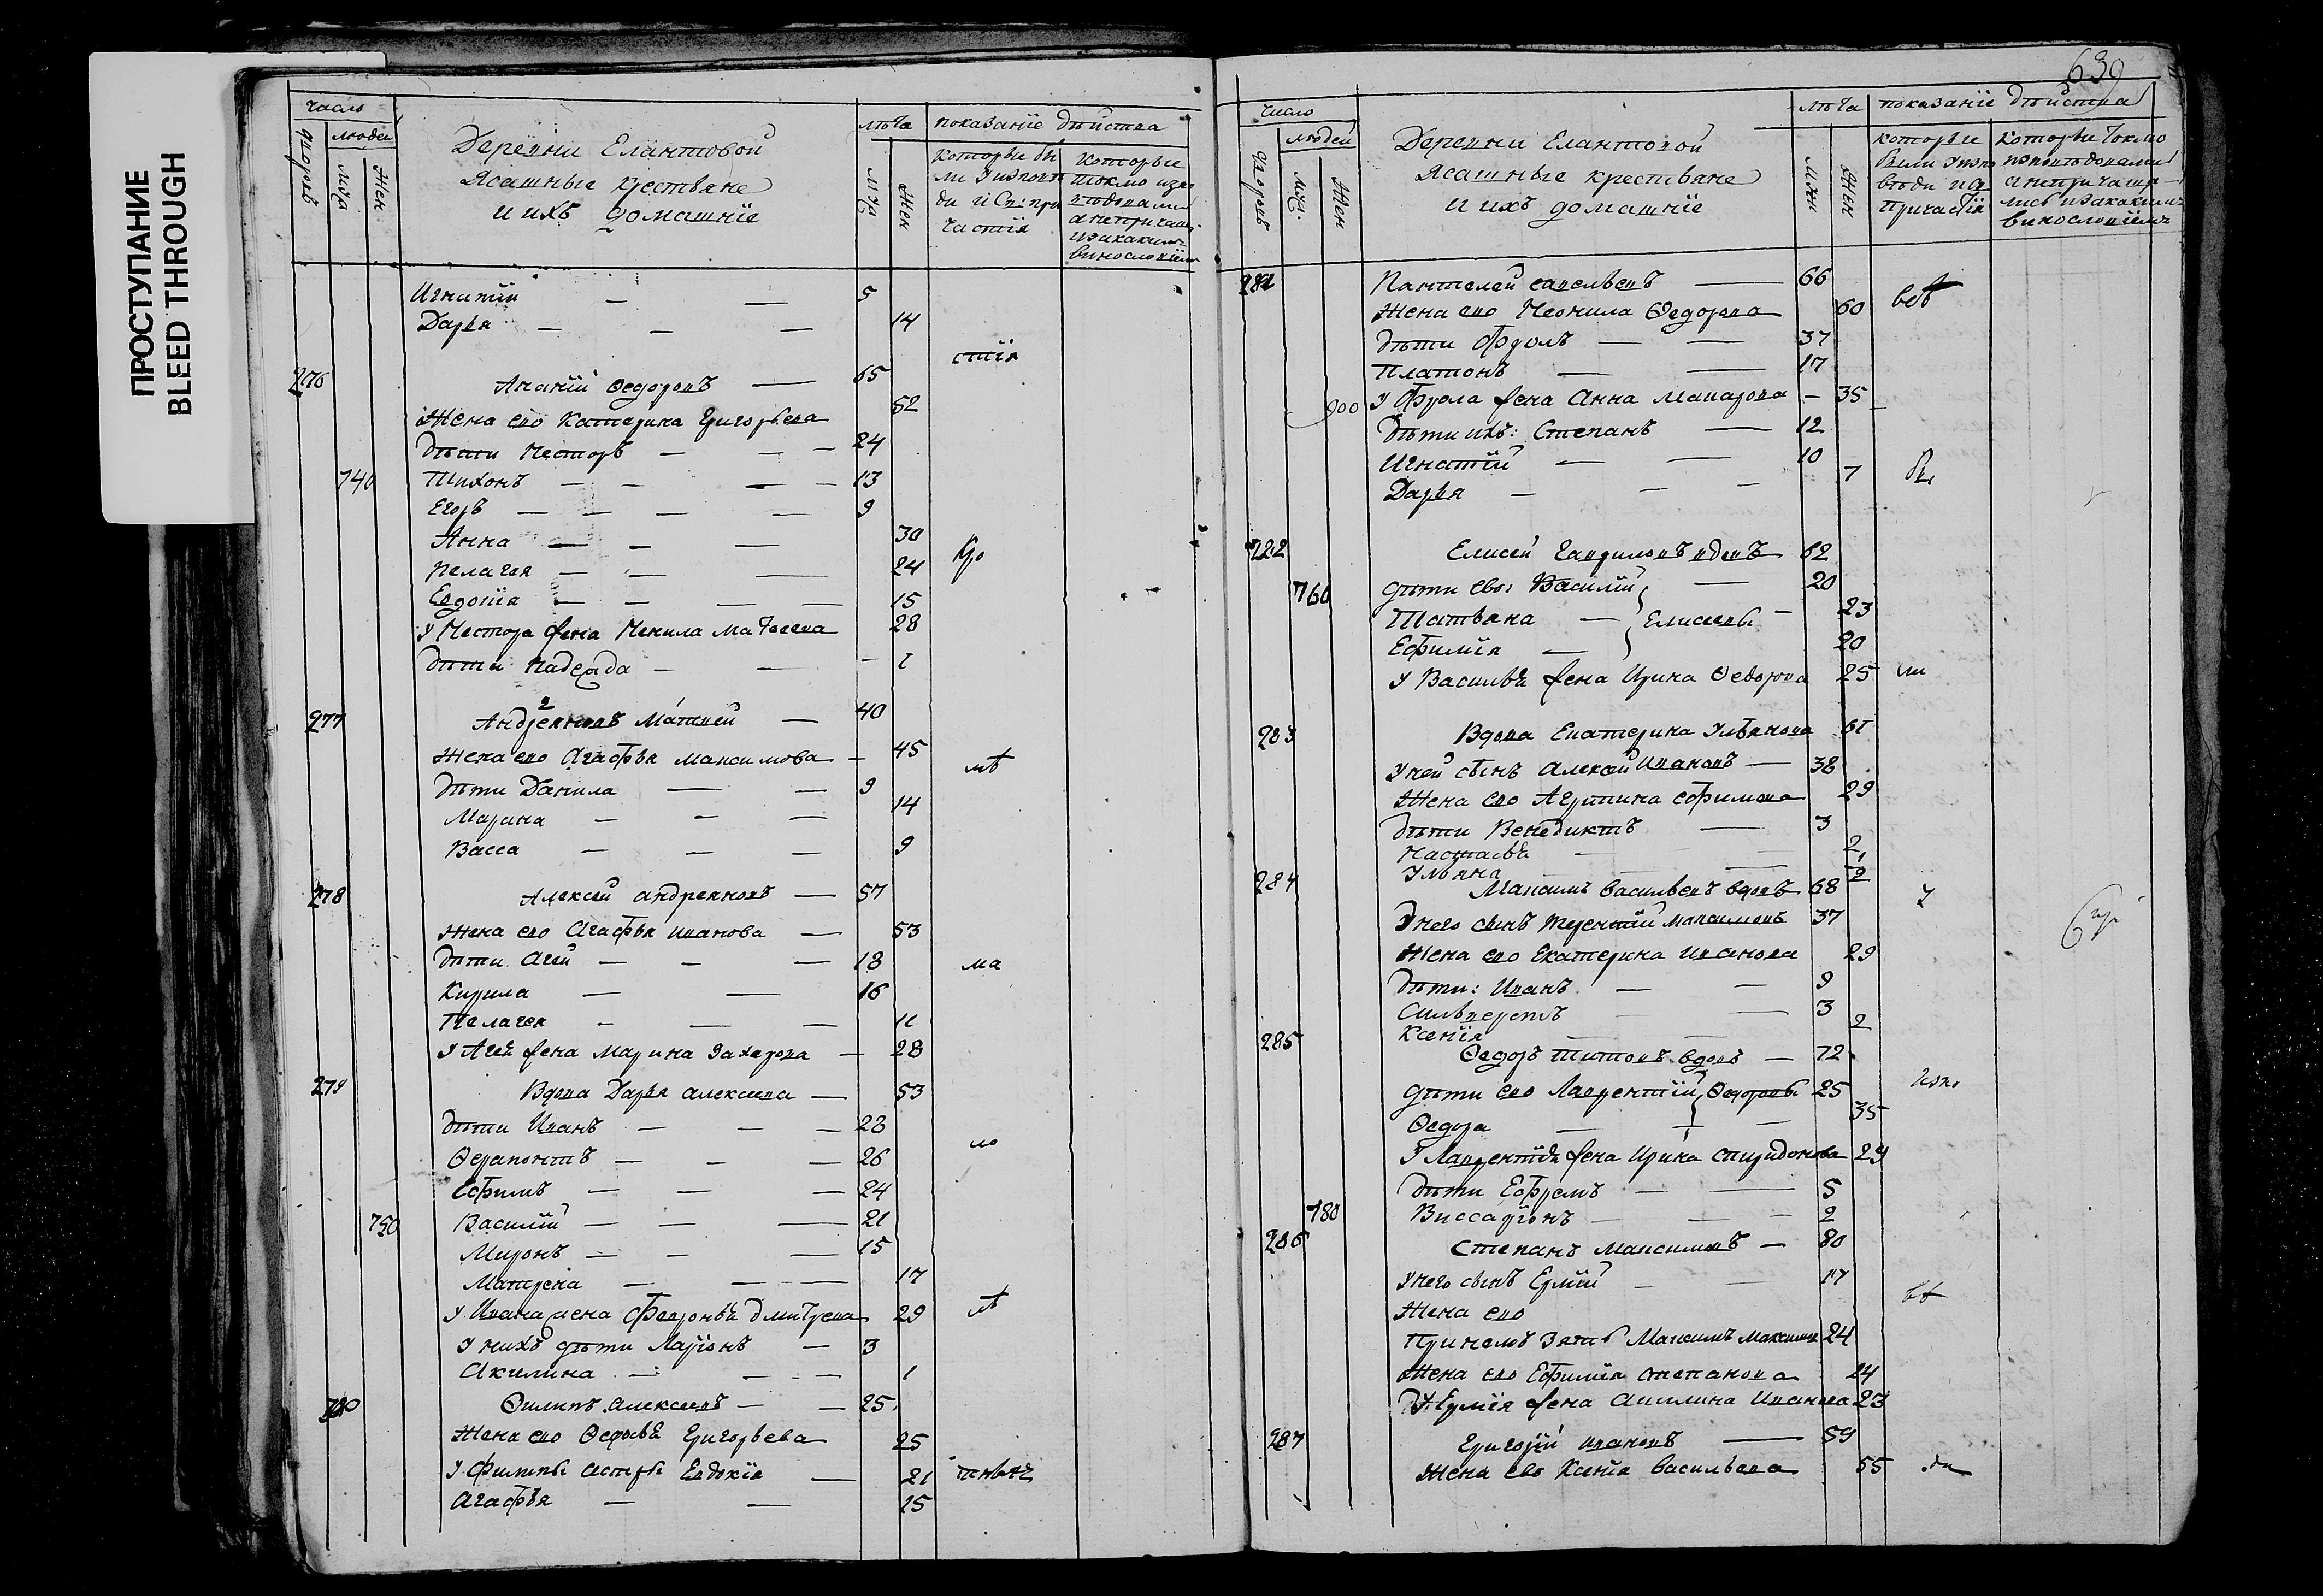 ПРОСТУПАНИЕ
BLEED THROUGH
число
людей
дворовъ
муж
жен
Деревни Елантовой
Ясашные крестьяне
и ихъ домашніе
лѣта
муж
жен
показаніе дѣйства
которые бы
ли у исповѣ
ди и св: при
частія
которые
токмо испо
вѣдовали
а непричащ
и за какимъ
винословіем
Игнатій — — 5
Дарья — — — 14
стія
276 Ананій Ѳедоровъ — 65
Жена ево Катерина Григорьева 52
Дѣти Несторъ — — — 24
740 Тихонъ — — — — 13
Егоръ — — — — 9
Анна — — — 30
Пелагея — — — 24
Евдокія — — — — 15
У Нестора жена Ненила Матвеева 28
Дѣти Надежда — — — 1
277 Андреяновъ Матвей — 40
Жена ево Агафья Максимова — 45
Дѣти Данила — — 9
Марина — — — 14
Васса — — — 9
278 Алексей Андреяновъ — 57
Жена ево Агафья Иванова — 53
Дѣти Агей — — — 18
ма
Кирила — — 16
Пелагея — — — 11
У Агея жена Марина Захарова — 28
279 Вдова Дарья Алексеева — 53
Дѣти Иванъ — — — 28
Ѳерапонтъ — — — 26
Ефимъ — — — 24
750 Василій — — — 21
Миронъ — — — 15
Матрена — — — 17
У Ивана жена Февронья Дмитрева 29
У нихъ дѣти Ларіонъ — 3
Акилина — — — 1
280 Филипъ Алексеевъ — — 25
Жена ево Ѳедосья Григорьева 25
У Филипа сестры Евдокія — 21
Агафья — — 15
639
число
людей
дворовъ
муж:
жен
Деревни Елантовой
Ясашные крестьяне
и ихъ домашніе
лѣта
муж
жен
показаніе дѣйства
которые
были у испо
вѣди и св
причастія
которыи токмо
исповѣдовались
а непричаща
лись и за какимъ
винословіемъ
281 Пантелей Савельевъ — 66
Жена ево Неонила Ѳедорова 60
Дѣти Фролъ — — 37
Платонъ — — 17
У Фрола жена Анна Макарова — 35
Дѣти ихъ: Степанъ — 12
Игнатій — — 10
Дарья — — — 7
282 Елисей Гавриловъ вдовъ 62
760 Дѣти ево: Василій — 20
Татьяна — Елисеевы — 23
Ефимія — 20
У Василья жена Ирина Ѳедорова 25
283 Вдова Екатерина Ульянова 61
У ней сынъ Алексей Ивановъ — 38
Жена ево Агрипина Ефимова 29
Дѣти Венедиктъ — 3
Настасья — — 2
Ульяна — — 2
284 Максимъ Васильевъ вдовъ 68
У него сынъ Терентій Максимовъ 37
Жена ево Екатерина Иванова 29
Дѣти: Иванъ — — 9
Сильверстъ — 3
Ксенія — — 2
285 Ѳедоръ Титовъ вдовъ — 72
Дѣти ево Лаврентій Ѳедоровы 25
Ѳедора — — 35
У Лаврентія жена Ирина Спиридонова 29
Дѣти Ефремъ — — 5
780 Виссаріонъ — — — 2
286 Степанъ Максимовъ — 80
У него сынъ Ермій — — 17
Жена ево
Пріемъ зять Максимъ Максимов 24
Жена ево Ефимія Степанова 24
У Ермія жена Акилина Иванова 23
287 Григорій Ивановъ — 59
Жена ево Ксенія Васильева 55